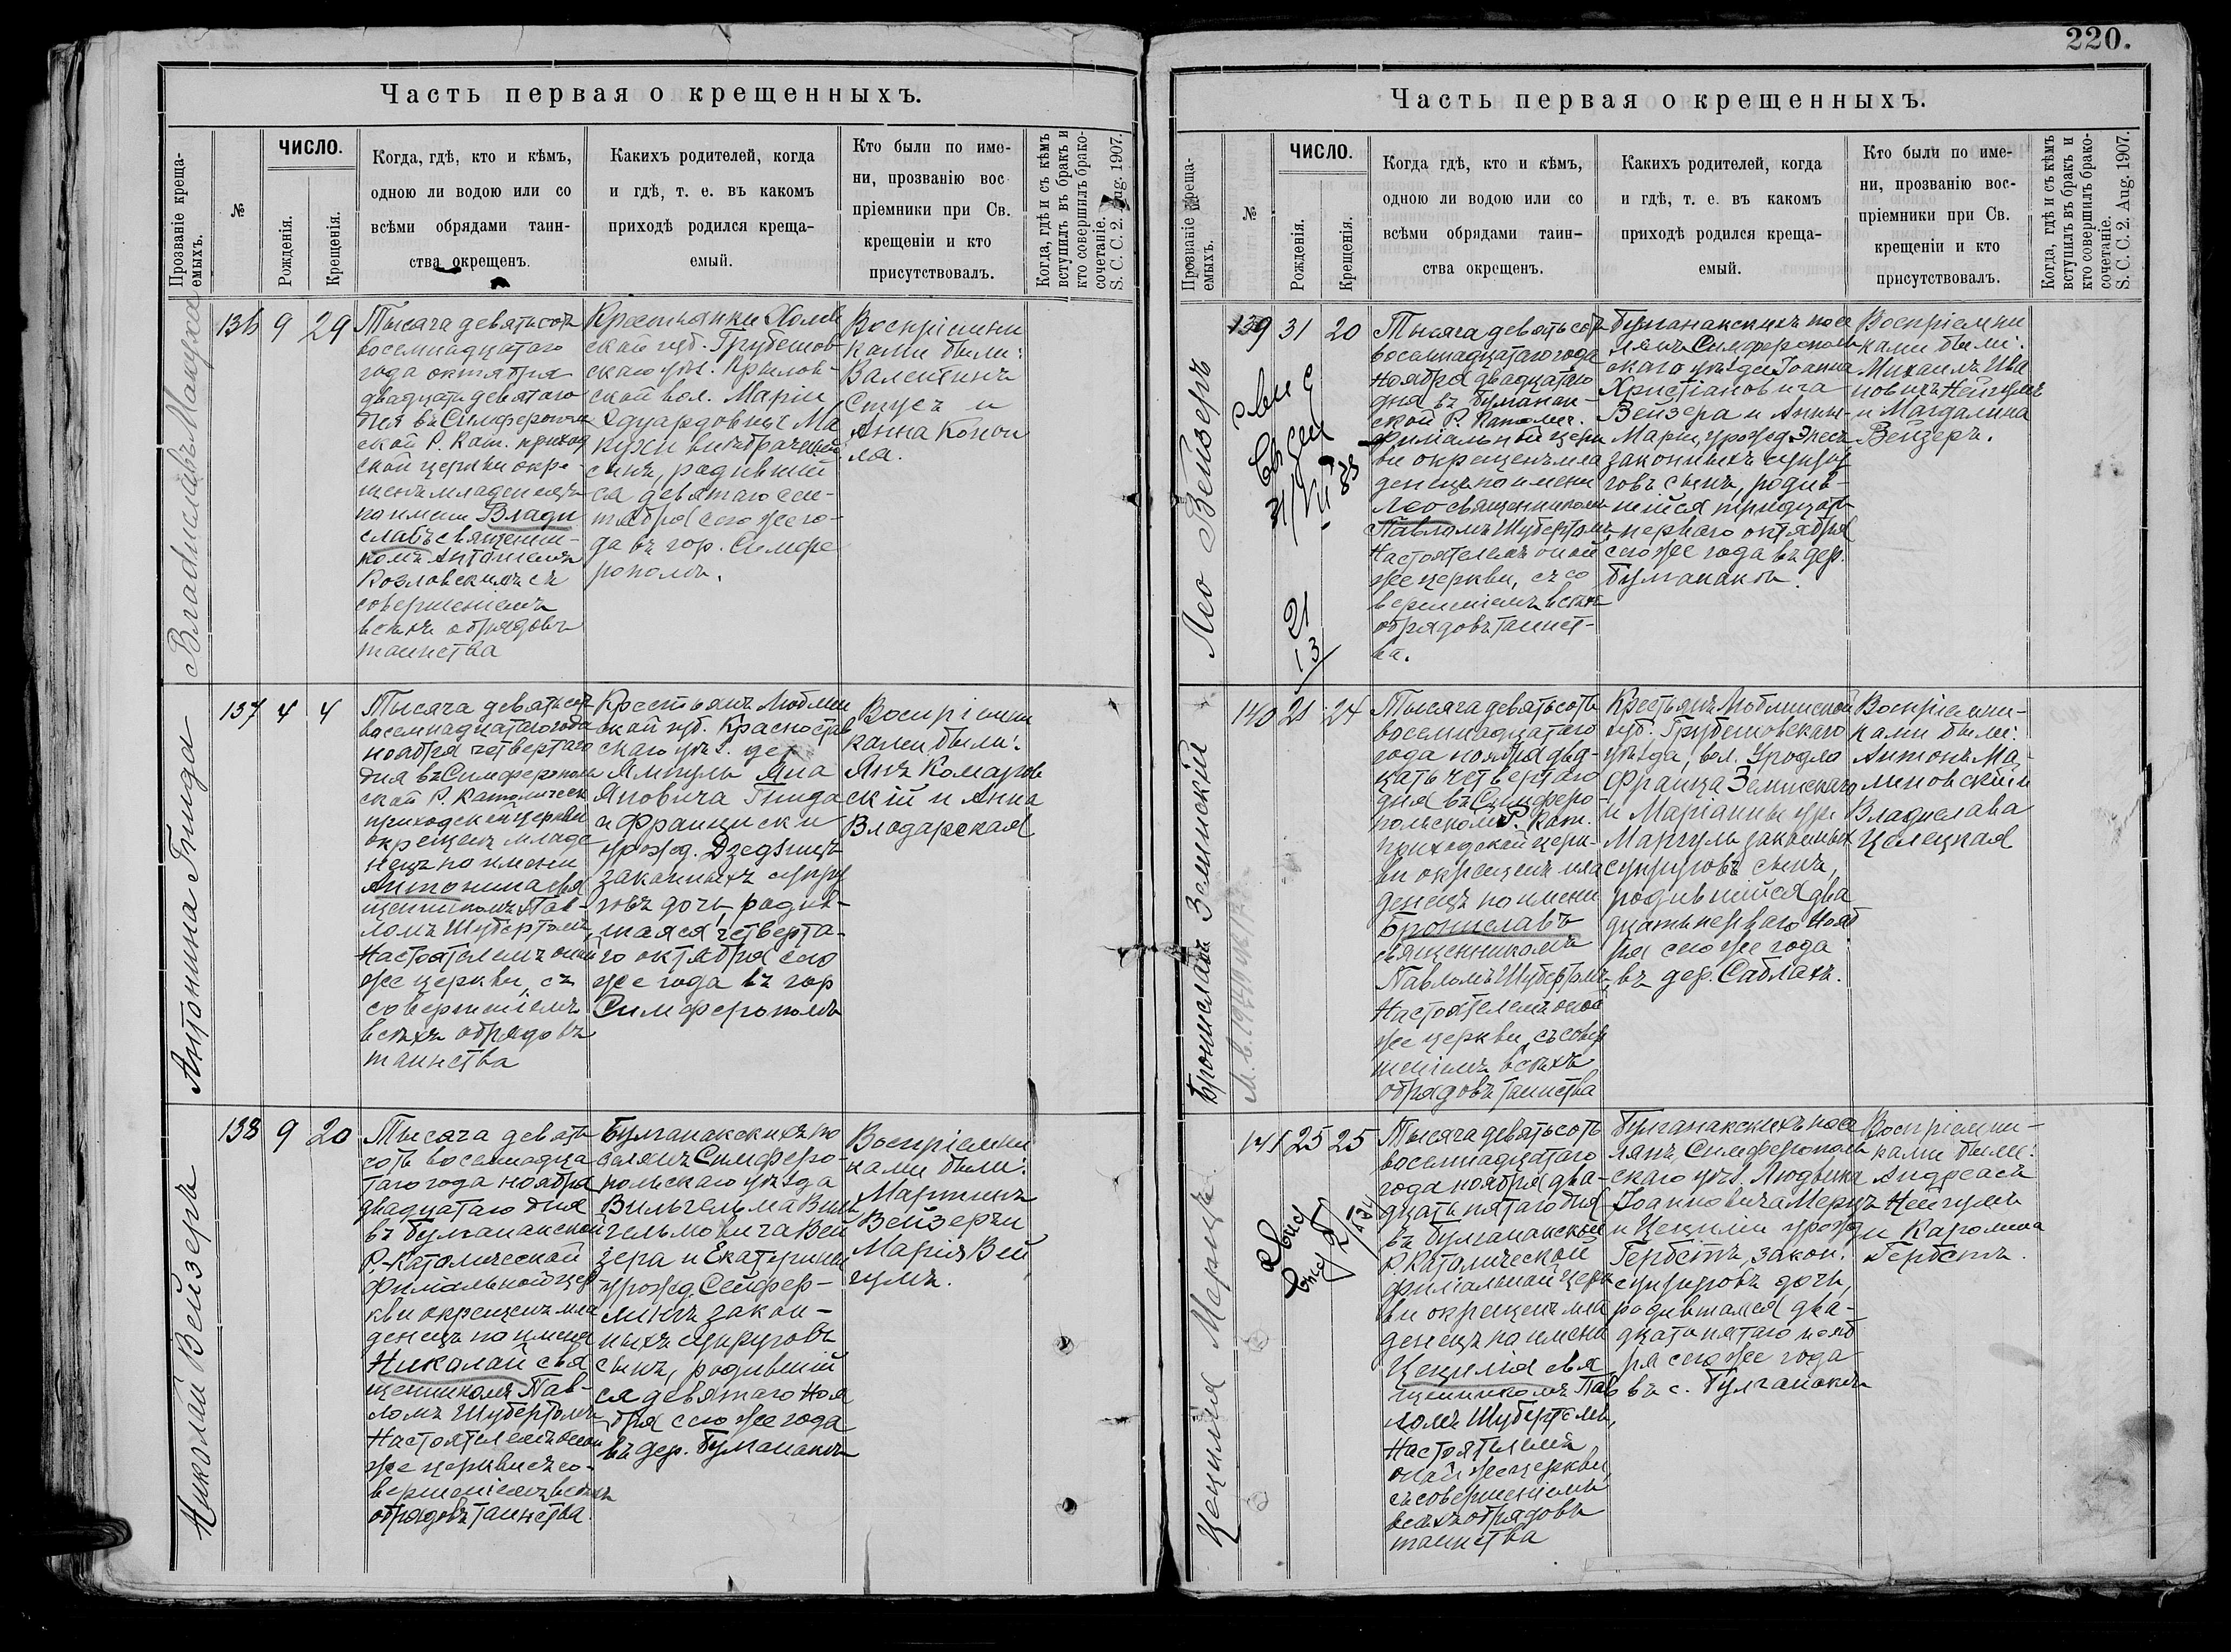 Часть первая о крещенныхъ.
Прозваніе креща-
емыхъ.
№
ЧИСЛО.
Рожденія.
Крещенія.
Когда, гдѣ, кто и кѣмъ,
одною ли водою или со
всѣми обрядами таин-
ства окрещенъ.
Какихъ родителей, когда
и гдѣ, т. е. въ какомъ
приходѣ родился креща-
емый.
Кто были по име-
ни, прозванію вос
пріемники при Св.
крещеніи и кто
присутствовалъ.
Когда, гдѣ и съ кѣмъ
вступилъ въ бракъ и
кто совершилъ брако-
сочетаніе.
S. C. C. 2. Aug. 1907.
Владиславъ
136 9 29
Тысяча девятьсотъ
восемнадцатаго
года октября
двадцать девятаго
дня въ Симферополь
ской Р. Кат. приход
ской церкви окре-
щенъ младенецъ
по имени Влади
славъ священни-
комъ Антоніемъ
Козловскимъ съ
совершеніемъ
всѣхъ обрядовъ
таинства
Крестьянки Холм
ской губ. Грубешов-
скаго уѣз. Крылов-
ской вол. Маріи
Эдуардовны Ма
кухи внѣбрачный
сынъ, родившій
ся девятаго сен-
тября сего же го-
да въ гор. Симфе
рополѣ.
Воспріемни
ками были:
Валентинъ
Стусъ и
Анна Копы
ла.
Антонина Гнида
137 4 4
Тысяча девятьсотъ
восемнадцатаго года
ноября четвертаго
дня въ Симферополь
ской Р. Католическ
приходской церкви
окрещенъ младе
нецъ по имени
Антонина свя
щенникомъ Пав-
ломъ Шубертомъ,
Настоятелемъ оной
же церкви, съ
совершеніемъ
всѣхъ обрядовъ
таинства
Крестьянъ Люблин
ской губ. Красностав
скаго уѣз. дер
Ямпуль Яна
Яновича Гнида
и Франциски
урожд. Дзедзицъ
законныхъ супру
говъ дочь, родив-
шаяся четверта-
го октября сего
же года въ гор
Симферополѣ
Воспріемни
ками были:
Янъ Комаров
скій и Анна
Влодарская
Николай Вейзеръ
138 9 20
Тысяча девять
сотъ восемнадца
таго года ноября
двадцатаго дня
въ Булганакской
Р.-Католической
Филіальной цер
кви окрещенъ мла
денецъ по имени
Николай свя
щенникомъ Пав-
ломъ Шубертомъ,
Настоятелемъ оной
же церкви съ со-
вершеніемъ всѣхъ
обрядовъ таинства.
Булганакскихъ по
селянъ Симферо-
польскаго уѣзда
Вильгельма Виль
гельмовича Вей
зера и Екатерины
урожд. Сейфер-
линъ закон-
ныхъ супруговъ
сынъ, родившій
ся девятаго ноя
бря сего же года
въ дер. Булганакъ
Воспріемни
ками были:
Мартинъ
Вейзеръ и
Марія Вей
гумъ.
220.
Часть первая о крещенныхъ.
Прозваніе креща-
емыхъ.
№
ЧИСЛО.
Рожденія.
Крещенія.
Когда гдѣ, кто и кѣмъ,
одною ли водою или со
всѣми обрядами таин-
ства окрещенъ.
Какихъ родителей, когда
и гдѣ, т. е. въ какомъ
приходѣ родился креща-
емый.
Кто были по име-
ни, прозванію вос-
пріемники при Св.
крещеніи и кто
присутствовалъ.
Когда, гдѣ и съ кѣмъ
вступилъ въ бракъ и
кто совершилъ брако-
сочетаніе.
S. C. C. 2. Aug. 1907.
Лео Вейзеръ
139 31 20
21
13
Тысяча девятьсотъ
восемнадцатаго года
Ноября двадцатаго
дня въ Булганак-
ской Р. Католич.
Филіальной церк
ви окрещенъ мла
денецъ по имени
Лео священникомъ
Павломъ Шубертомъ,
Настоятелемъ оной
же церкви, съ со
вершеніемъ всѣхъ
обрядовъ таинст-
ва.
Булганакскихъ посе
лянъ Симферополь
скаго уѣзда Іоанна
Христіановича
Вейзера и Анны-
Маріи, урожд.
законныхъ супру
говъ сынъ, родив-
шійся тридцать
перваго октября
сего же года въ дер.
Булганакъ.
Воспріемни
ками были:
Михаилъ Ива
новичъ Нейгумъ
и Магдалина
Вейзеръ.
Брониславъ Земинскій
140 21 24
Тысяча девятьсотъ
восемнадцатаго
года ноября двад-
цать четвертаго
дня въ Симферо-
польской Р. Кат.
приходской церк-
ви окрещенъ мла
денецъ по имени
Брониславъ
священникомъ
Павломъ Шубертомъ,
Настоятелемъ оной
же церкви, съ совер
шеніемъ всѣхъ
обрядовъ таинства
Крестьянъ Люблинской
губ. Грубешовскаго
уѣзда, вол. Уродло
Франца Земинскаго
и Маріанны ур.
Маргуль законныхъ
супруговъ сынъ,
родившійся два
дцать перваго нояб
ря сего же года
въ дер. Саблахъ.
Воспріемни-
ками были:
Антонъ Ма
линовскій и
Владислава
Целецкая
Цецилія Мерцъ
141 25 25
Тысяча девятьсотъ
восемнадцатаго
года ноября два-
дцать пятаго дня
въ Булганакской
Р. Католической
филіальной церк
ви окрещенъ мла
денецъ по имени
Цецилія свя
щенникомъ Пав
ломъ Шубертомъ,
Настоятелемъ
оной же церкви,
съ совершеніемъ
всѣхъ обрядовъ
таинства
Булганакскихъ посе
лянъ, Симферополь
скаго уѣз. Людвика
Іоанновича Мерцъ
и Цециліи урожд
Гербстъ, закон.
супруговъ дочь,
родившаяся два-
дцать пятаго нояб
ря сего же года
въ с. Булганакъ
Воспріемни-
ками были:
Андреасъ
Нейгумъ
и Каролина
Гербстъ.